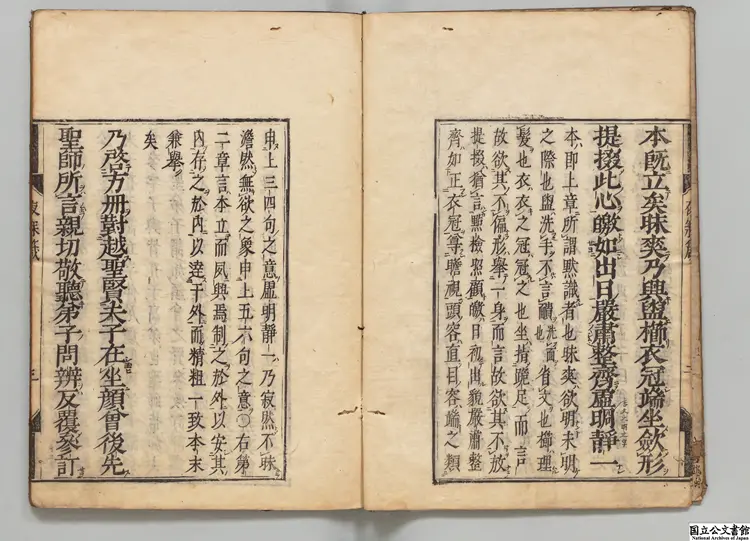 本既立矣昧爽乃興盥櫛衣冠端坐歛形
提掇此心皦如出日嚴肅整齊虛明靜一
本即上章所謂黙識者也昧爽欲明未明
之際也盥洗手不言頮洗面也省文也櫛理
髮也衣衣之冠冠之也坐指跪足而言
故欲其不偏形舉一身而言故欲其不放
提掇猶言點檢照顧皦日初出貌嚴肅整
齊如正衣冠尊瞻視頭容直目容端之類
申上三四句之意虛明靜一乃寂然不昧
澹然無欲之象申上五六句之意○右第
二章言本立而夙興焉制之於外以安其
內存之於內以達于外而精粗一致本末
兼舉
矣
乃啓方冊對越聖賢夫子在坐顏曾後先
聖師所言親切敬聽弟子問辨反覆參訂
三
国立公文書館
National Archives of Japan